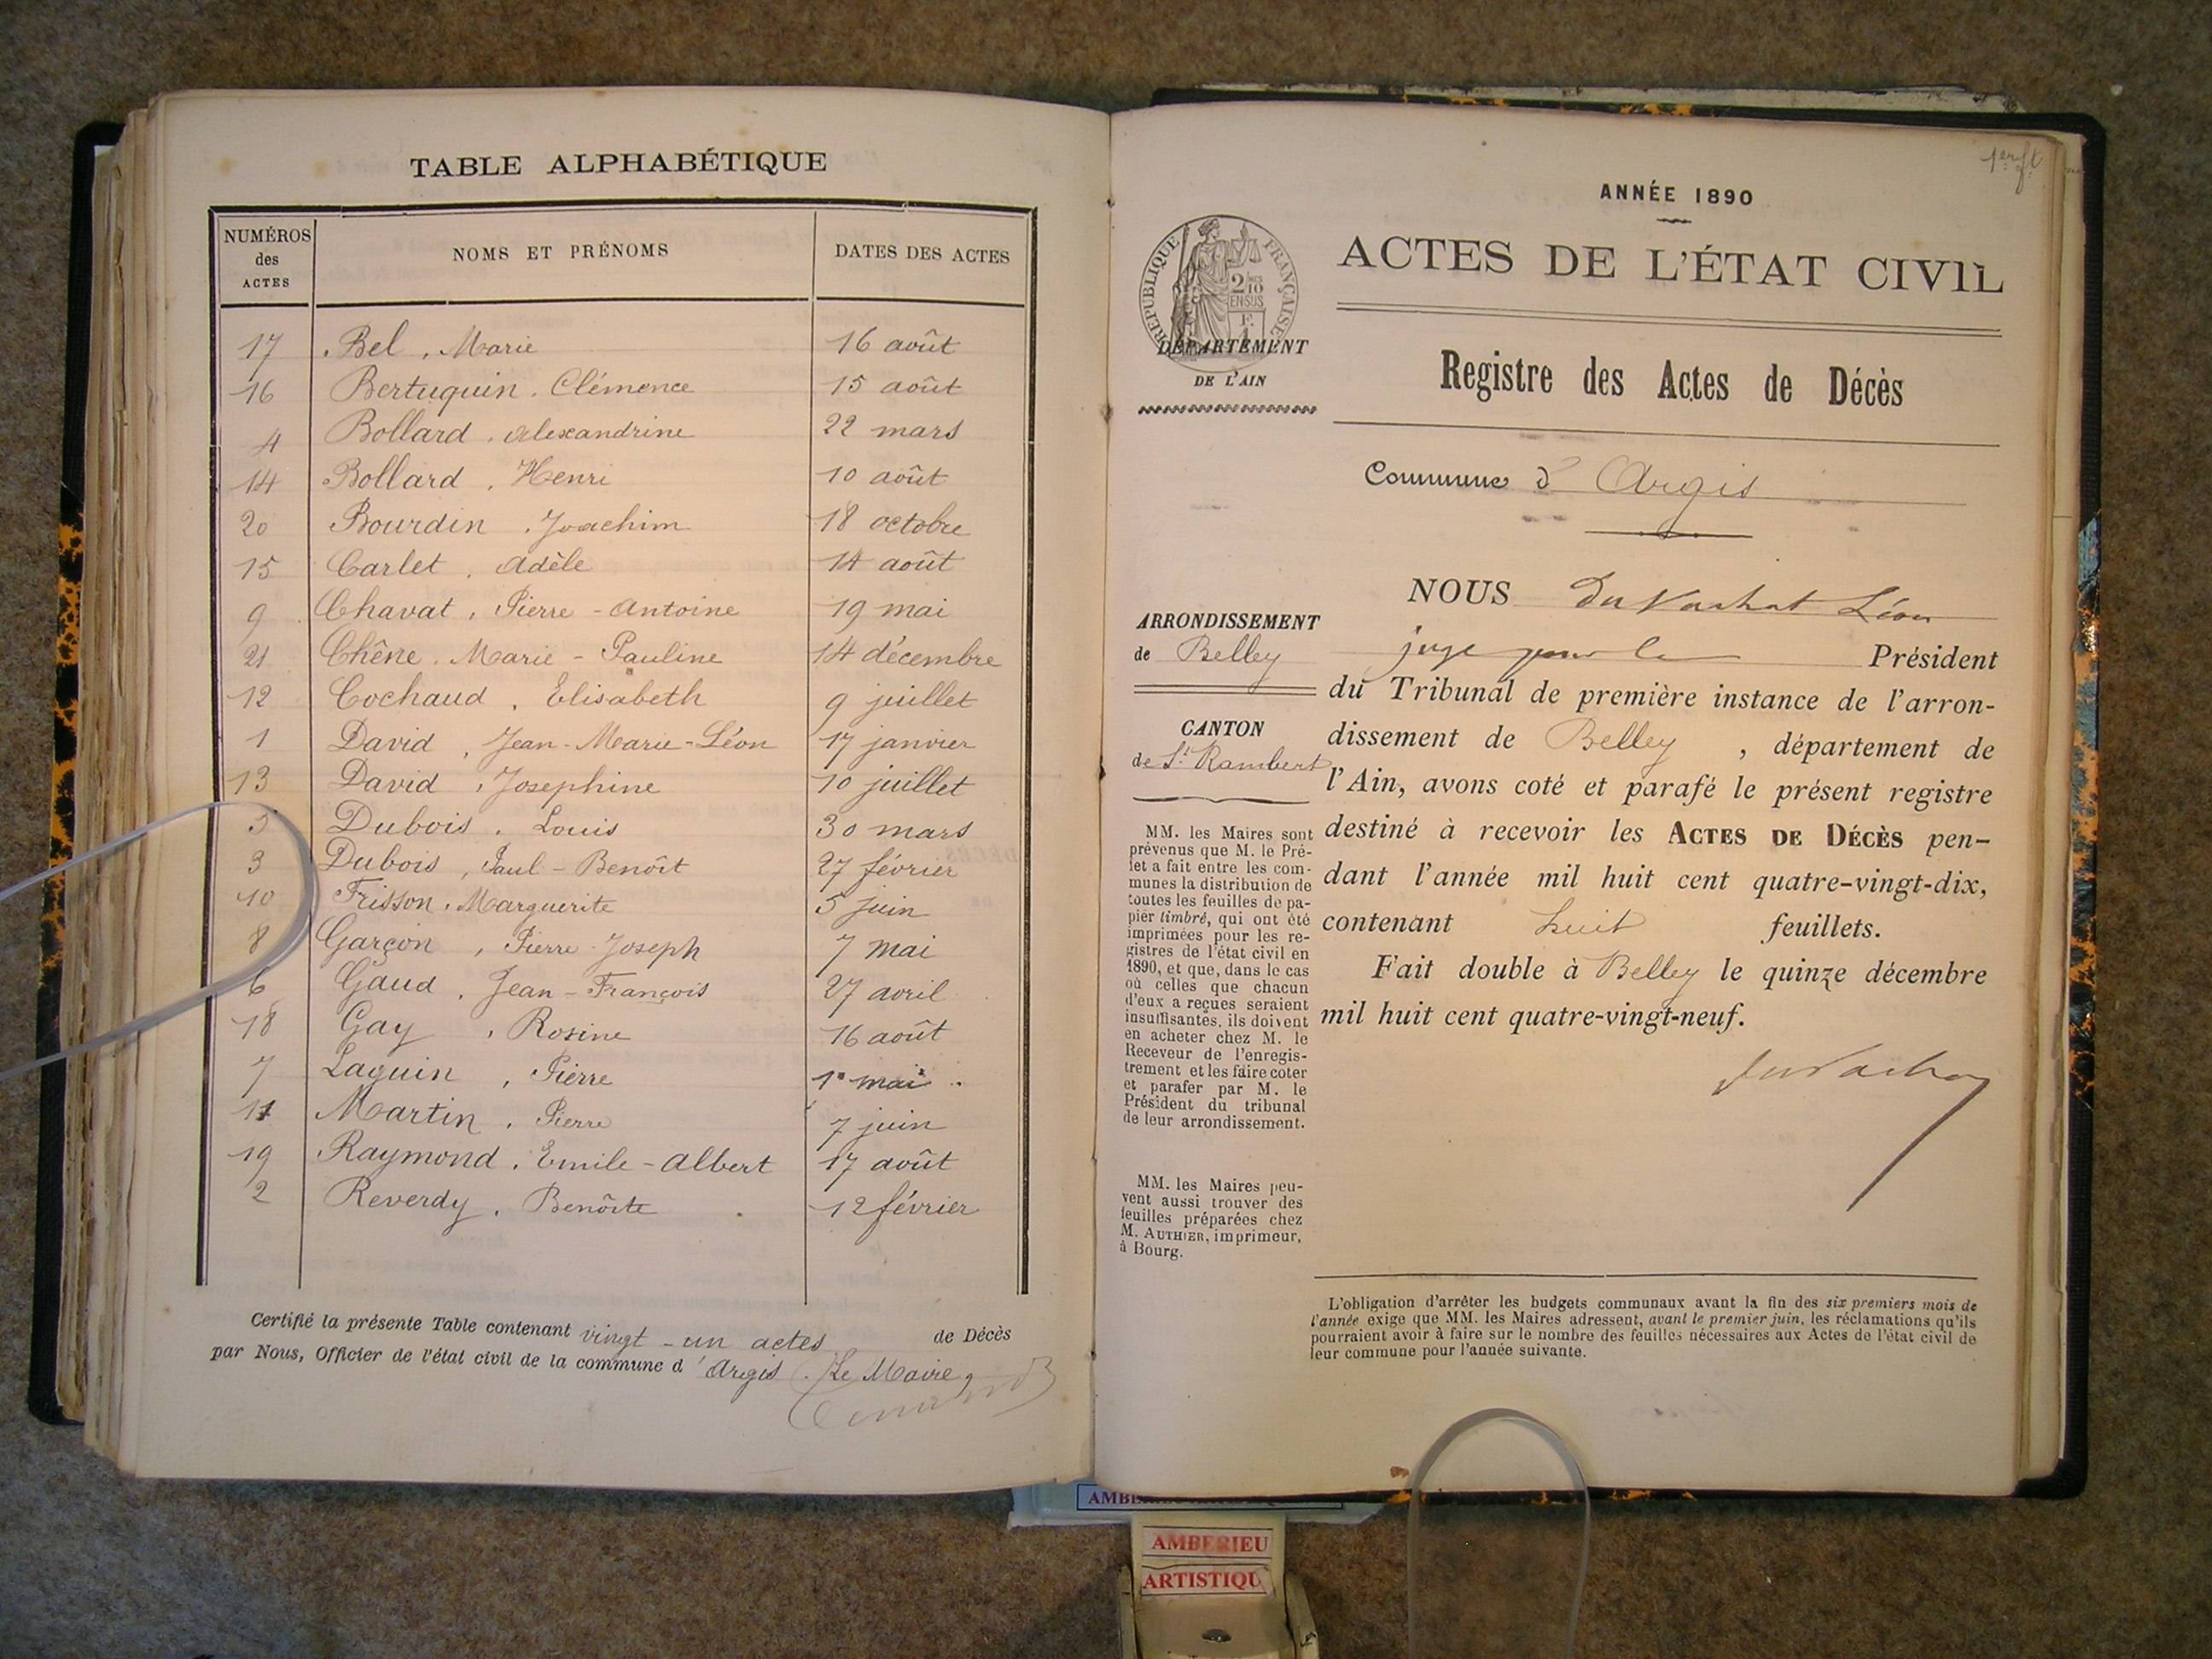 TABLE ALPHABÉTIQUE
NUMÉROS des ACTES NOMS ET PRÉNOMS DATES DES ACTES
17 Bel, Marie 16 août
16 Bertuquin, Clémence 15 août
4 Bollard, Alexandrine 22 mars
14 Bollard, Henri 10 août
20 Bourdin, Joachim 18 octobre
15 Carlet, Adèle 14 août
9 Chavat, Pierre-Antoine 19 mai
21 Chêne, Marie-Pauline 14 décembre
12 Cochaud, Elisabeth 9 juillet
1 David, Jean-Marie-Léon 17 janvier
13 David, Josephine 10 juillet
5 Dubois, Louis 30 mars
3 Dubois, Paul-Benoît 27 février
10 Frisson, Marguerite 5 juin
8 Garçon, Pierre-Joseph 7 mai
6 Gaud, Jean-François 27 avril
18 Gay, Rosine 16 août
7 Laguin, Pierre 1er mai
11 Martin, Pierre 7 juin
19 Raymond, Emile-Albert 17 août
2 Reverdy, Benoîte 12 février
Certifié la présente Table contenant vingt-un actes de Décès
par Nous, Officier de l'état civil de la commune d'Argis. Le Maire,
1er ft
ANNÉE 1890
ACTES DE L'ÉTAT CIVIL
RÉPUBLIQUE FRANÇAISE
2/10 EN SUS
DÉPARTEMENT
DE L'AIN
Registre des Actes de Décès
Commune d'Argis
ARRONDISSEMENT
de Belley
CANTON
de St Rambert
MM. les Maires sont
prévenus que M. le Pré-
fet a fait entre les com-
munes la distribution de
toutes les feuilles de pa-
pier timbré, qui ont été
imprimées pour les re-
gistres de l'état civil en
1890, et que, dans le cas
où celles que chacun
d'eux a reçues seraient
insuffisantes, ils doivent
en acheter chez M. le
Receveur de l'enregis-
trement et les faire coter
et parafer par M. le
Président du tribunal
de leur arrondissement.
MM. les Maires peu-
vent aussi trouver des
feuilles préparées chez
M. AUTHIER, imprimeur,
à Bourg.
NOUS Du Vachat Léon
juge pour le Président
du Tribunal de première instance de l'arron-
dissement de Belley, département de
l'Ain, avons coté et parafé le présent registre
destiné à recevoir les ACTES DE DÉCÈS pen-
dant l'année mil huit cent quatre-vingt-dix,
contenant huit feuillets.
Fait double à Belley le quinze décembre
mil huit cent quatre-vingt-neuf.
DuVachat
L'obligation d'arrêter les budgets communaux avant la fin des six premiers mois de
l'année exige que MM. les Maires adressent, avant le premier juin, les réclamations qu'ils
pourraient avoir à faire sur le nombre des feuilles nécessaires aux Actes de l'état civil de
leur commune pour l'année suivante.
AMBERIEU
ARTISTIQU